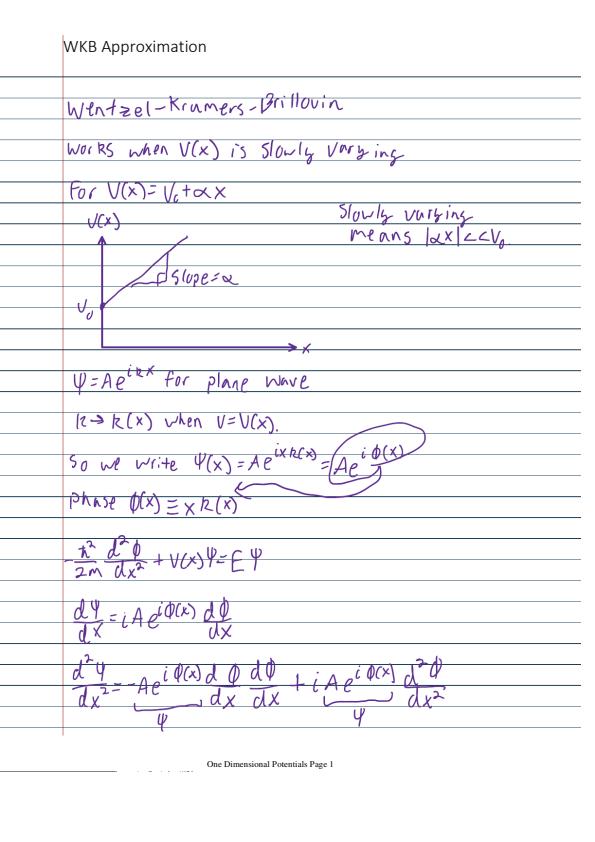 WKB Approximation
Wentzel-Kramers-Brillouin
works when V(x) is slowly varying
For V(x)=V₀+αx
Slowly varying
means |αx|<<V₀
V(x)
slope=α
V₀
x
ψ=Ae^{ikx} for plane wave
k→k(x) when V=V(x).
So we write ψ(x)=Ae^{ixk(x)}=Ae^{iϕ(x)}
phase ϕ(x)≡xk(x)
-ħ²/2m d²ϕ/dx² + V(x)ψ=Eψ
dψ/dx=iAe^{iϕ(x)} dϕ/dx
d²ψ/dx²=-Ae^{iϕ(x)} dϕ/dx dϕ/dx + iAe^{iϕ(x)} d²ϕ/dx²
ψ ψ
One Dimensional Potentials Page 1